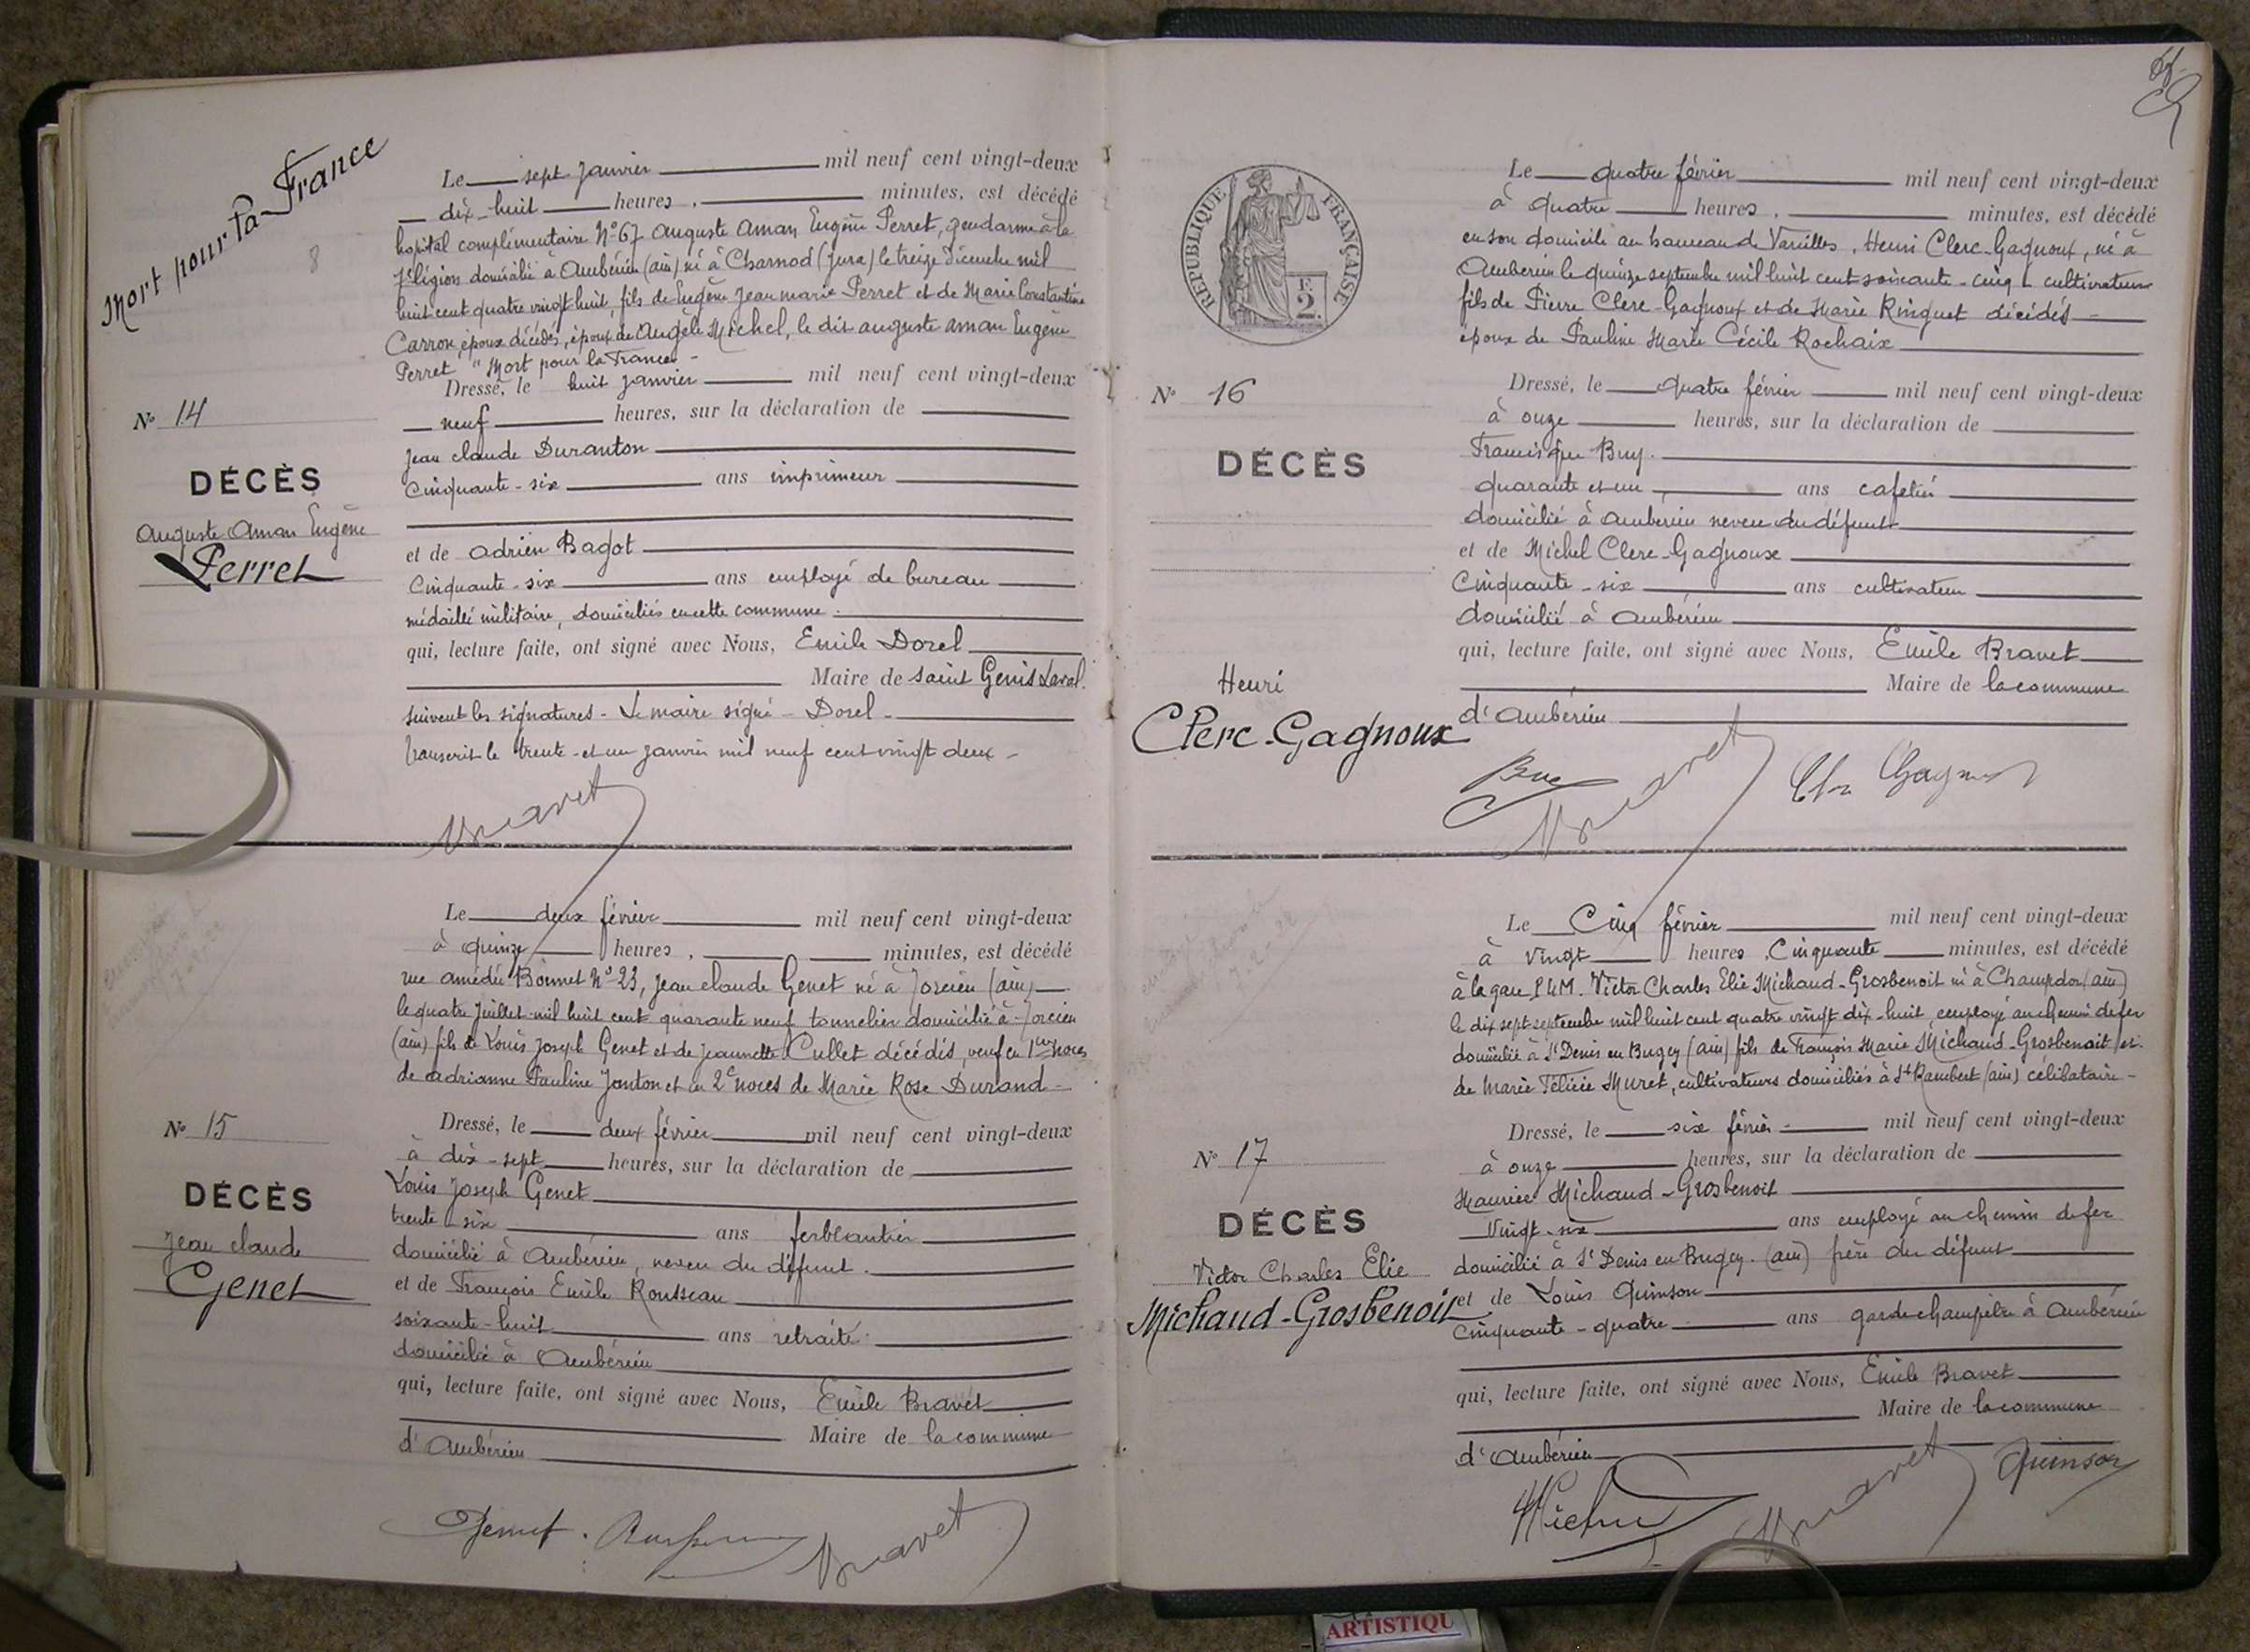 Mort pour la France
8
Le sept janvier mil neuf cent vingt-deux
dix-huit heures, minutes, est décédé
hopital complémentaire N° 67 Auguste Aman Eugène Perret, gendarme à la
légion domicilié à Ambérieu (ain) né à Charnod (Jura) le treize décembre mil
huit cent quatre vingt huit, fils de Eugène Jean marie Perret et de Marie Constantine
Carron, époux décédés, époux de Angèle Michel, le dit auguste aman Eugène
Perret "Mort pour la France" -
Dressé, le huit janvier mil neuf cent vingt-deux
neuf heures, sur la déclaration de
Jean claude Duranton
Cinquante-six ans imprimeur
et de Adrien Bagot
Cinquante-six ans employé de bureau
médaillé militaire, domiciliés en cette commune.
qui, lecture faite, ont signé avec Nous, Emile Dorel
Maire de saint Genis Laval.
suivent les signatures - Le maire signé - Dorel -
transcrit le trente-et-un janvier mil neuf cent vingt deux -
Bravet
N° 14
DÉCÈS
Auguste Aman Eugène
Perret
Le deux février mil neuf cent vingt-deux
à quinze heures, minutes, est décédé
rue amédée Bonnet N° 23, Jean claude Genet né à Torcieu (ain)
le quatre juillet mil huit cent quarante neuf tonnelier domicilié à Torcieu
(ain) fils de Louis Joseph Genet et de Jeannette Cullet décédés, veuf en 1ères noces
de adrianne Pauline Jonton et en 2e noces de Marie Rose Durand -
Dressé, le deux février mil neuf cent vingt-deux
à dix-sept heures, sur la déclaration de
Louis Joseph Genet
trente-six ans ferblantier
domicilié à Ambérieu, neveu du défunt.
et de François Emile Rousseau
soixante-huit ans retraité
domicilié à Ambérieu
qui, lecture faite, ont signé avec Nous, Emile Bravet
Maire de la commune
d'Ambérieu
Genet. Bravet
N° 15
DÉCÈS
Jean claude
Genet
RÉPUBLIQUE FRANÇAISE
F.
2.
Le quatre février mil neuf cent vingt-deux
à quatre heures, minutes, est décédé
en son domicile au hameau de Vareilles, Henri Clerc-Gagnoux, né à
Ambérieu le quinze septembre mil huit cent soixante-cinq cultivateur
fils de Pierre Clerc-Gagnoux et de Marie Ringuet décédés -
époux de Pauline Marie Cécile Rochaix
Dressé, le quatre février mil neuf cent vingt-deux
à onze heures, sur la déclaration de
Francisque Buy.
quarante et un, ans cafetier
domicilié à Ambérieu neveu du défunt
et de Michel Clerc-Gagnoux
Cinquante-six ans cultivateur
domicilié à Ambérieu
qui, lecture faite, ont signé avec Nous, Emile Bravet
Maire de la commune
d'Ambérieu
Bravet
N° 16
DÉCÈS
Henri
Clerc-Gagnoux
Le Cinq février mil neuf cent vingt-deux
à vingt heures, Cinquante minutes, est décédé
à la gare PLM. Victor Charles Elie Michaud-Grosbenoit né à Champdor (ain)
le dix sept septembre mil huit cent quatre vingt dix-huit, employé au chemin de fer
domicilié à St Denis en Bugey (ain) fils de François Marie Michaud-Grosbenoit et
de Marie Félicie Muret, cultivateurs domiciliés à St Rambert (ain) célibataire -
Dressé, le six février mil neuf cent vingt-deux
à onze heures, sur la déclaration de
Maurice Michaud-Grosbenoit
Vingt-six ans employé au chemin de fer
domicilié à St Denis en Bugey. (ain) frère du défunt
et de Louis Quinson
Cinquante-quatre ans garde champêtre à Ambérieu
qui, lecture faite, ont signé avec Nous, Emile Bravet
Maire de la commune
d'Ambérieu
Bravet Quinson
N° 17
DÉCÈS
Victor Charles Elie
Michaud-Grosbenoit
ARTISTIQU